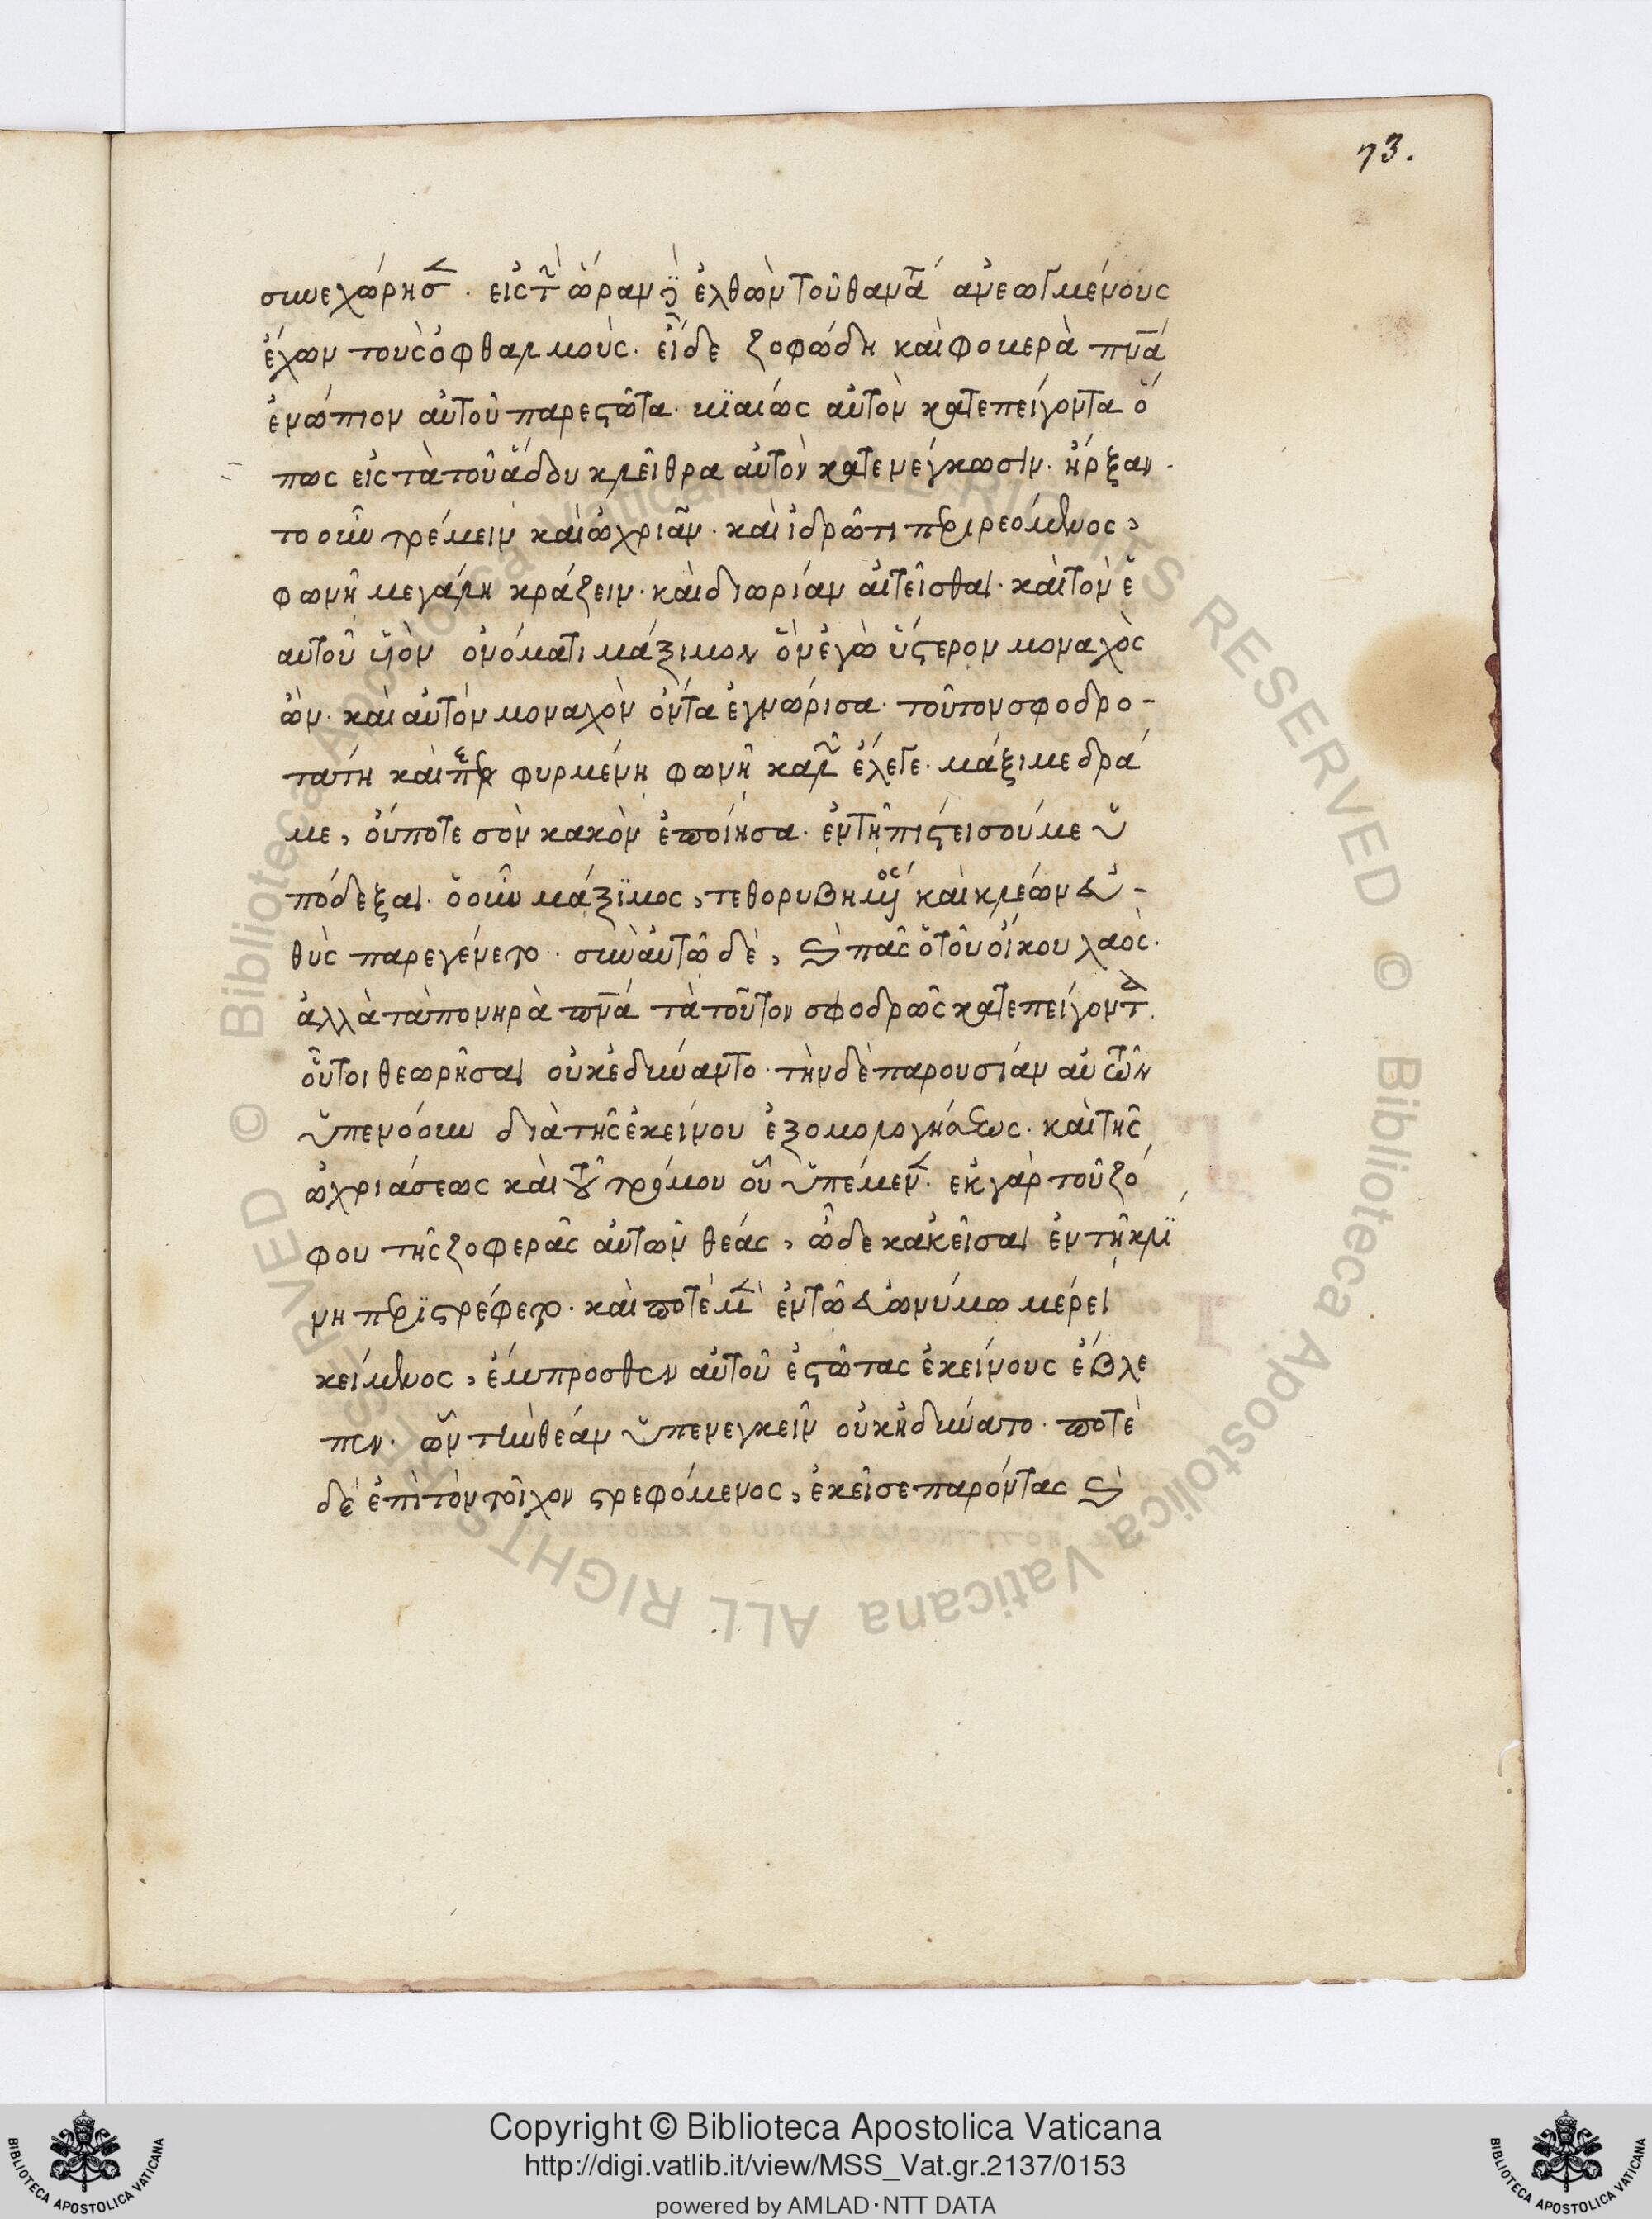 73.
συνεχώρησε. εἰς τὴν ὥραν γὰρ ἐλθὼν τοῦ θανάτου ἀνεωγμένους
ἔχων τοὺς ὀφθαλμοὺς. εἶδε ζοφώδη καὶ φονερὰ πνά
ἐνώπιον αὐτοῦ παρεστῶτα. βιαίως αὐτὸν κατεπείγοντα ὅ
πως εἰς τὰ τοῦ ἅδου κλεῖθρα αὐτὸν κατενέγκωσιν. ἤρξαν-
το οὖν τρέμειν καὶ ὠχριᾶν. καὶ ἱδρῶτι περιρεόμενος,
φωνῆ μεγάλη κράζειν. καὶ διωρίαν αἰτεῖσθαι. καὶ τὸν ἑ
αυτοῦ υἱὸν ὀνόματι μάξιμον ὃν ἐγὼ ὕστερον μοναχὸς
ὢν. καὶ αὐτὸν μοναχὸν ὄντα ἐγνώρισα. τοῦτον σφοδρο-
τάτη καὶ φυρμένη φωνῆ καλῶν ἔλεγε. μάξιμε δρά
με, οὔποτε σὸν κακὸν ἐποίησα. ἐν τῆ πίστει σου με ὑ
πόδεξαι. ὁ οὖν μάξιμος, τεθορυβημένος καὶ κλέων εὐ-
θὺς παρεγένετο. σὺν αὐτῶ δὲ, καὶ πᾶς ὁ τοῦ οἴκου λαὸς.
ἀλλὰ τὰ πονηρὰ πνά τὰ τοῦτον σφοδρῶς κατεπείγοντα.
οὗτοι θεωρῆσαι οὐκ ἐδύναντο. τὴν δὲ παρουσίαν αὐτῶν
ὑπενόουν διὰ τῆς ἐκείνου ἐξομολογήσεως. καὶ τῆς
ὠχριάσεως καὶ τοῦ τρόμου οὗ ὑπέμενε. ἐκ γὰρ τοῦ ζό
φου τῆς ζοφερᾶς αὐτῶν θέας, ὧδε κἀκεῖσαι ἐν τῆ κλί
νη περιστρέφετο. καὶ ποτὲ μὲν ἐν τῶ εὐωνύμω μέρει
κείμενος, ἔμπροσθεν αὐτοῦ ἑστῶτας ἐκείνους ἔβλε
πεν. ὧν τὴν θέαν ὑπενεγκεῖν οὐκ ἠδύνατο. ποτὲ
δὲ ἐπὶ τὸν τοῖχον στρεφόμενος, ἐκεῖσε παρόντας καὶ
Copyright © Biblioteca Apostolica Vaticana
http://digi.vatlib.it/view/MSS_Vat.gr.2137/0153
powered by AMLAD·NTT DATA